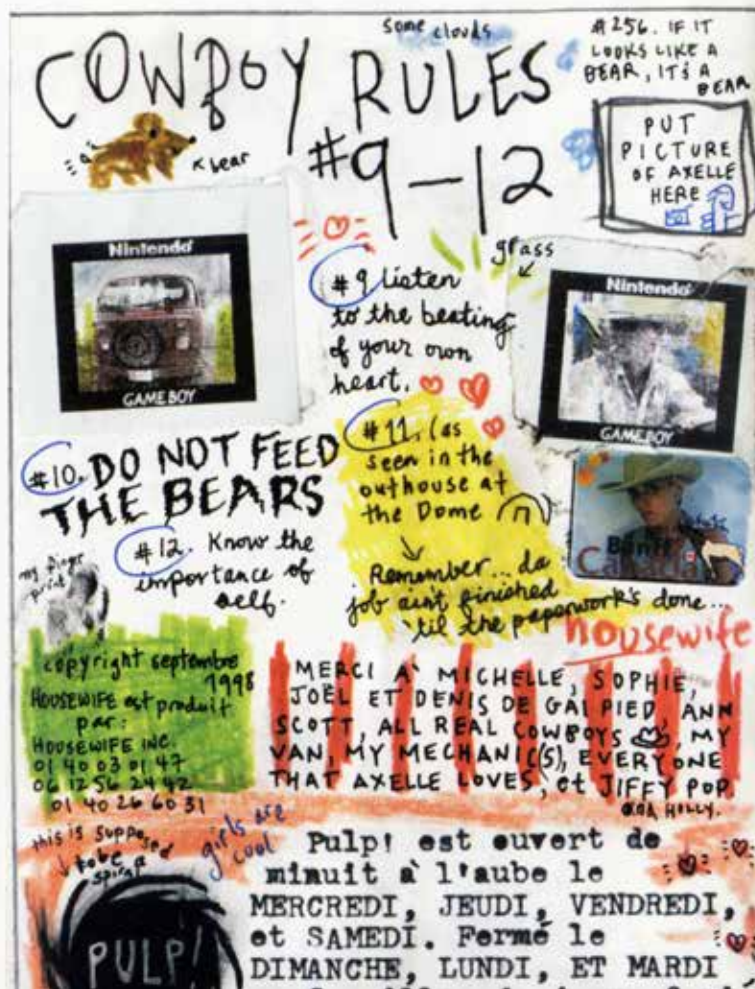 some clouds
COWBOY RULES
#9-12
#256. IF IT
LOOKS LIKE A
BEAR, IT'S A
BEAR
bear
PUT
PICTURE
OF AXELLE
HERE
grass
Nintendo
GAMEBOY
#9 Listen
to the beating
of your own
heart.
Nintendo
GAMEBOY
#10. DO NOT FEED
THE BEARS
#11. (as
seen in the
outhouse at
the Dome
Remember... da
job ain't finished
'til the paperwork's done...
#12. Know the
importance of
self.
my finger
print
Banff
Canada
housewife
copyright septembre
1998
HOUSEWIFE est produit
par:
HOUSEWIFE INC.
01 40 03 01 47
06 12 56 24 42
01 40 26 60 31
MERCI A' MICHELLE, SOPHIE,
JOËL ET DENIS DE GAI PIED, ANN
SCOTT, ALL REAL COWBOYS, MY
VAN, MY MECHANIC(S), EVERYONE
THAT AXELLE LOVES, et JIFFY POP
AKA HOLLY.
this is supposed
to be a
spiral
girls are
cool
PULP!
Pulp! est ouvert de
minuit à l'aube le
MERCREDI, JEUDI, VENDREDI,
et SAMEDI. Fermé le
DIMANCHE, LUNDI, ET MARDI